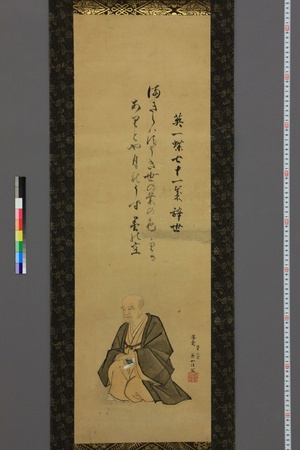 英一蝶七十一歳辞世
まきらハすうき世の業の色とりも
ありとや月のうす墨の空